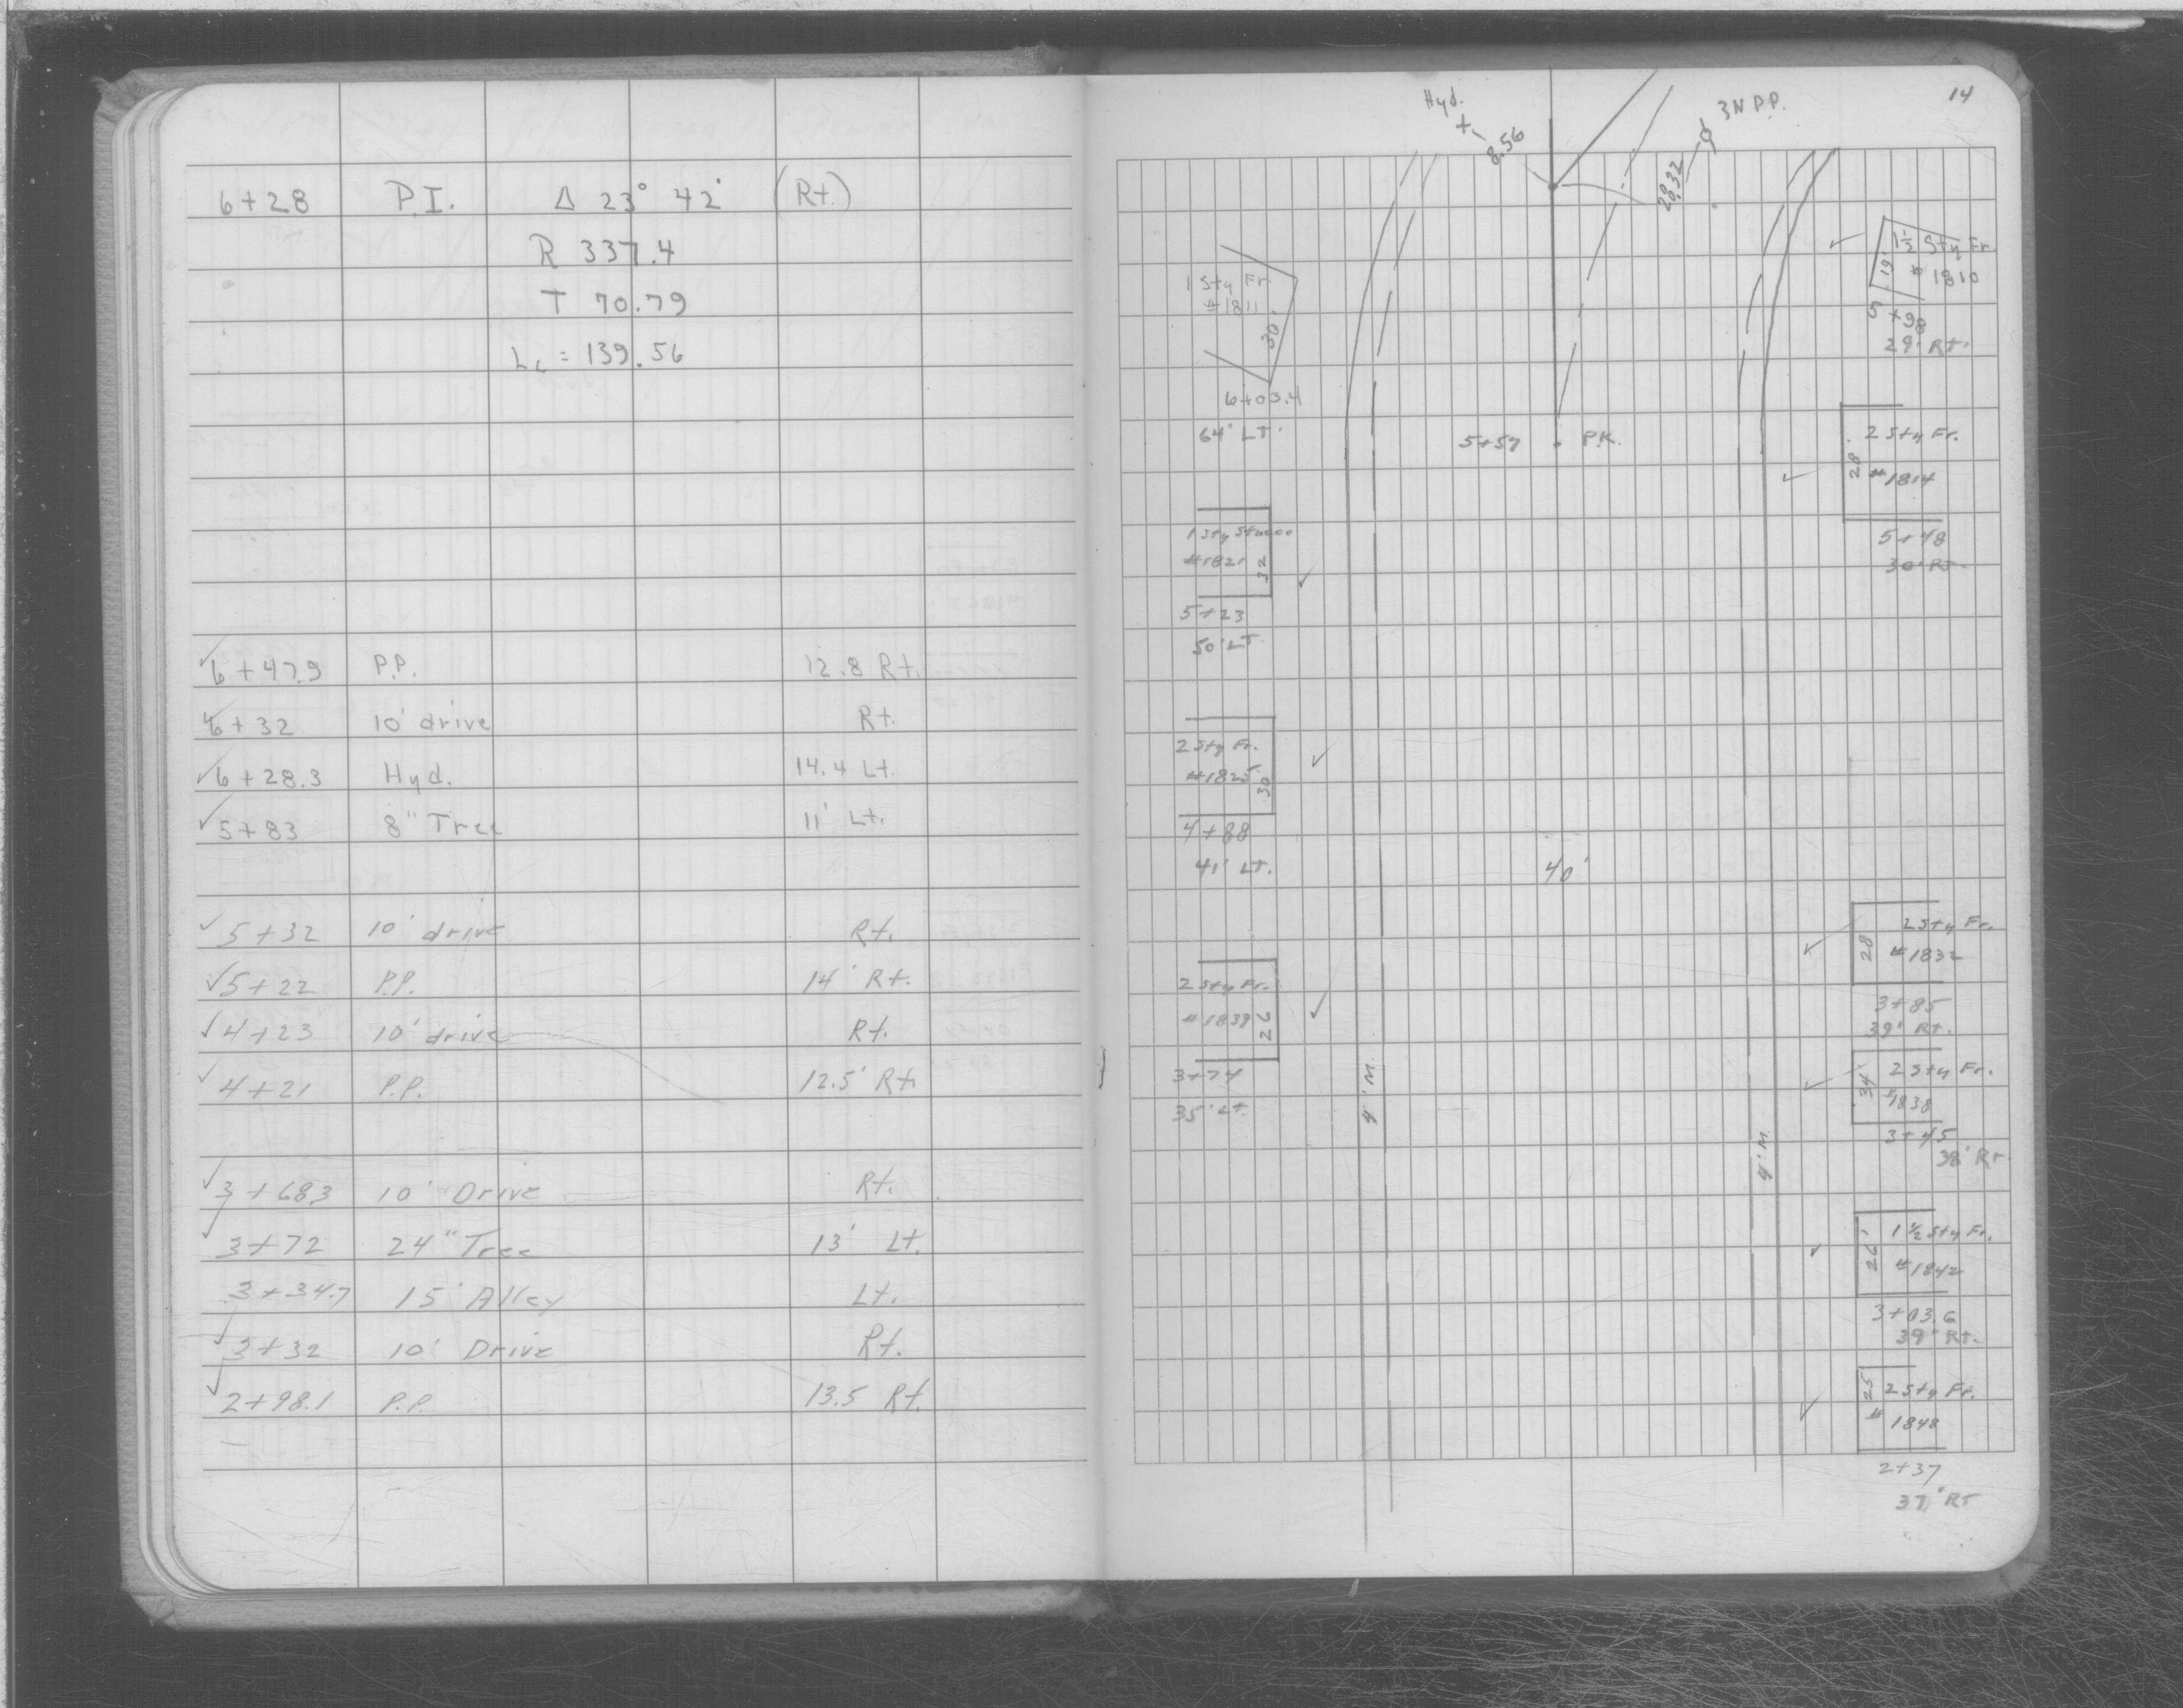 6+28 P.I. Δ 23° 42' (Rt.)
R 337.4
T 70.79
Lc = 139.56
6+47.9 P.P. 12.8 Rt.
6+32 10' drive Rt.
6+28.3 Hyd. 14.4 Lt.
5+83 8" Tree 11' Lt.
5+32 10' drive Rt.
5+22 P.P. 14' Rt.
4+23 10' drive Rt.
4+21 P.P. 12.5' Rt.
3+68.3 10' Drive Rt.
3+72 24" Tree 13' Lt.
3+34.7 15' Alley Lt.
3+32 10' Drive Rt.
2+98.1 P.P. 13.5 Rt.
14
Hyd.
8.56
3N P.P.
29.32
1 Sty Fr.
#1811
30'
6+03.4
64' LT.
1½ Sty Fr.
19' # 1810
5+98
29' Rt.
5+57 P.K.
2 Sty Fr.
28
#1814
5+48
30' Rt.
1 Sty Stucco
#1821
32
5+23
50' LT.
2 Sty Fr.
#1825
30
4+88
41' LT.
40'
2 Sty Fr.
28 #1832
3+85
39' Rt.
2 Sty Fr.
#1839
26
3+74
35' Lt.
2 Sty Fr.
34 #1838
3+45
38' Rt.
4' M.
4' M.
1½ Sty Fr.
26'
#1842
3+03.6
39' Rt.
25 2 Sty Fr.
# 1848
2+37
37' RT